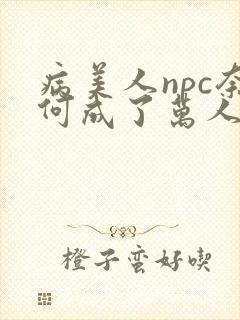 病美人npc奈
何成了萬人
橙子蛮好喫